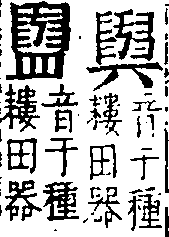 音于種
耬田器
音于種
耬田器